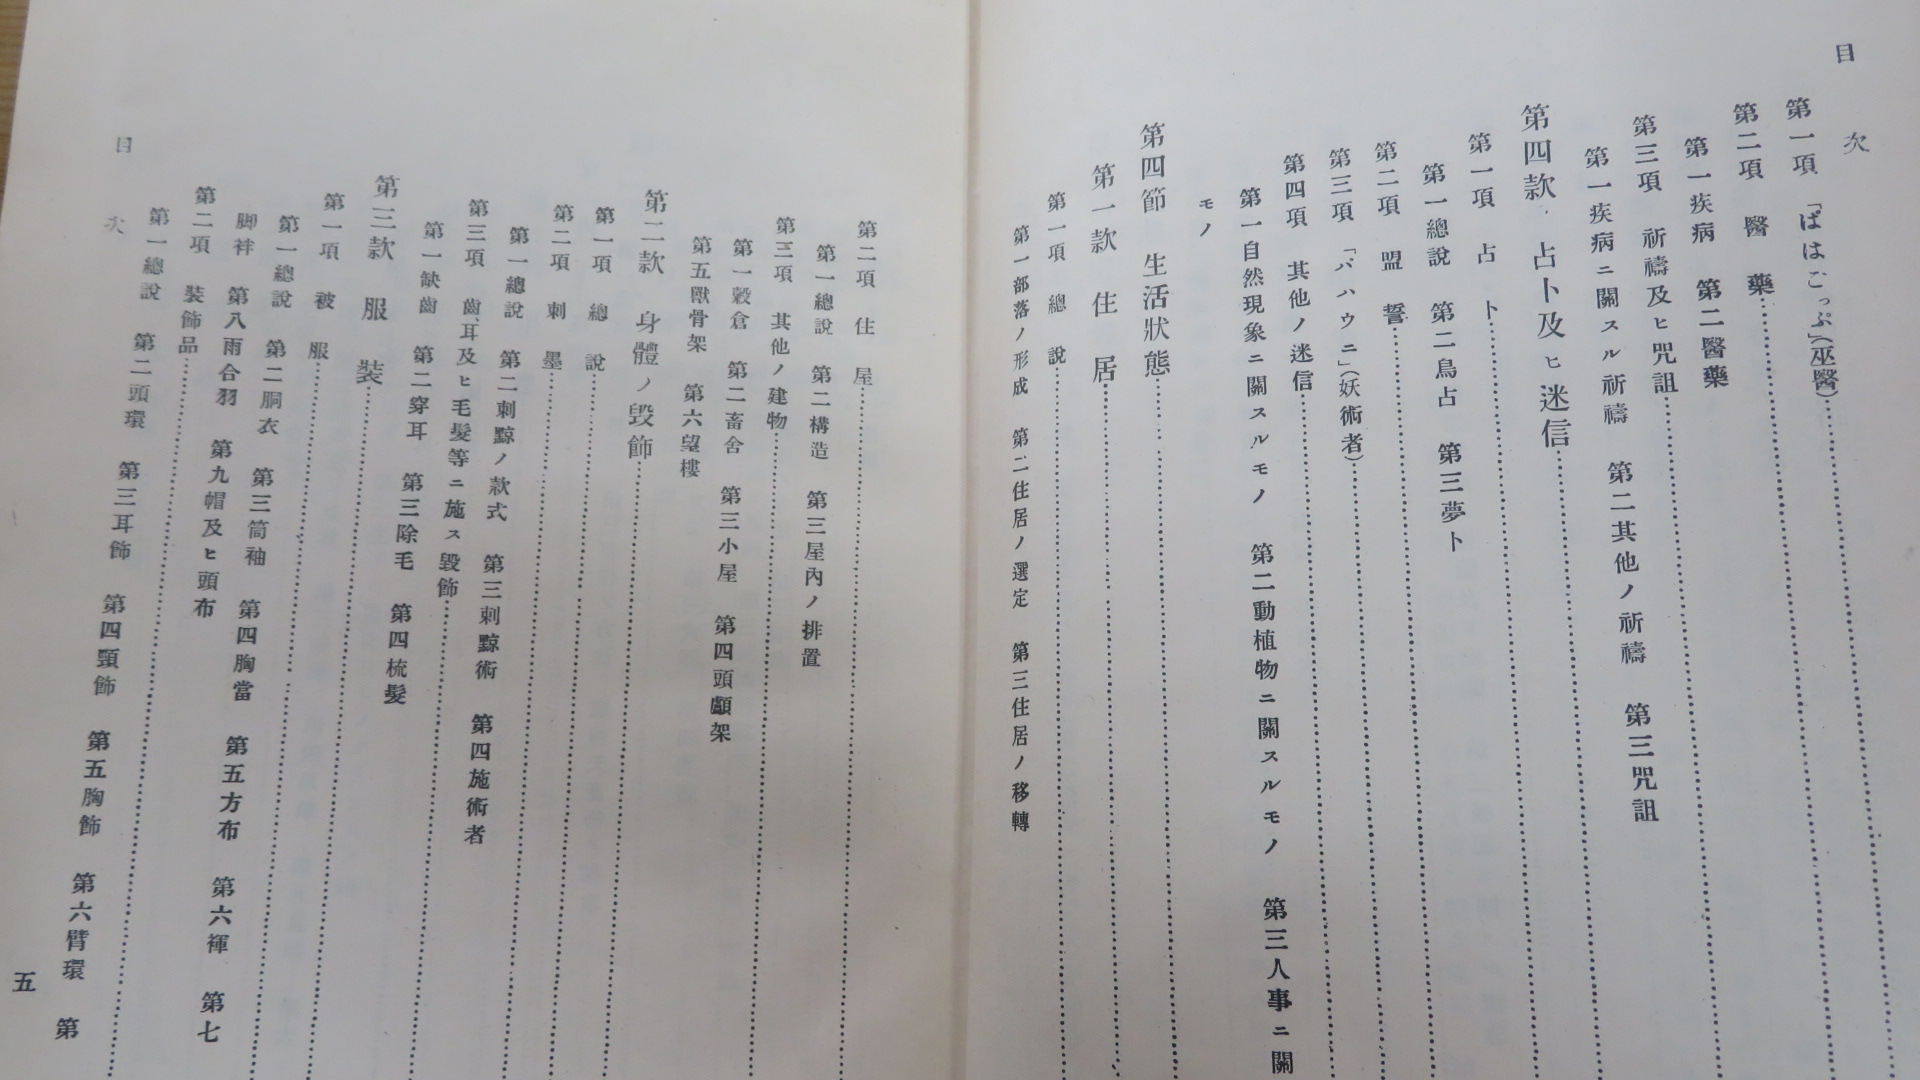 目次
第一項 「ぱはこっぷ」(巫醫)
第二項 醫藥
第一疾病 第二醫藥
第三項 祈禱及ヒ咒詛
第一疾病ニ關スル祈禱 第二其他ノ祈禱 第三咒詛
第四款 占卜及ヒ迷信
第一項 占卜
第一總說 第二鳥占 第三夢卜
第二項 盟誓
第三項 「パハウニ」(妖術者)
第四項 其他ノ迷信
第一自然現象ニ關スルモノ 第二動植物ニ關スルモノ 第三人事ニ關
モノ
第四節 生活狀態
第一款 住居
第一項 總說
第一部落ノ形成 第二住居ノ選定 第三住居ノ移轉
第二項 住屋
第一總說 第二構造 第三屋內ノ排置
第三項 其他ノ建物
第一穀倉 第二畜舍 第三小屋 第四頭顱架
第五獸骨架 第六望樓
第二款 身體ノ毀飾
第一項 總說
第二項 刺墨
第一總說 第二刺黥ノ款式 第三刺黥術 第四施術者
第三項 齒、耳及ヒ毛髮等ニ施ス毀飾
第一缺齒 第二穿耳 第三除毛 第四梳髮
第三款 服裝
第一項 被服
第一總說 第二胴衣 第三筒袖 第四胸當 第五方布 第六褌 第七
脚絆 第八雨合羽 第九帽及ヒ頭布
第二項 裝飾品
第一總說 第二頭環 第三耳飾 第四頸飾 第五胸飾 第六臂環 第
目次
五